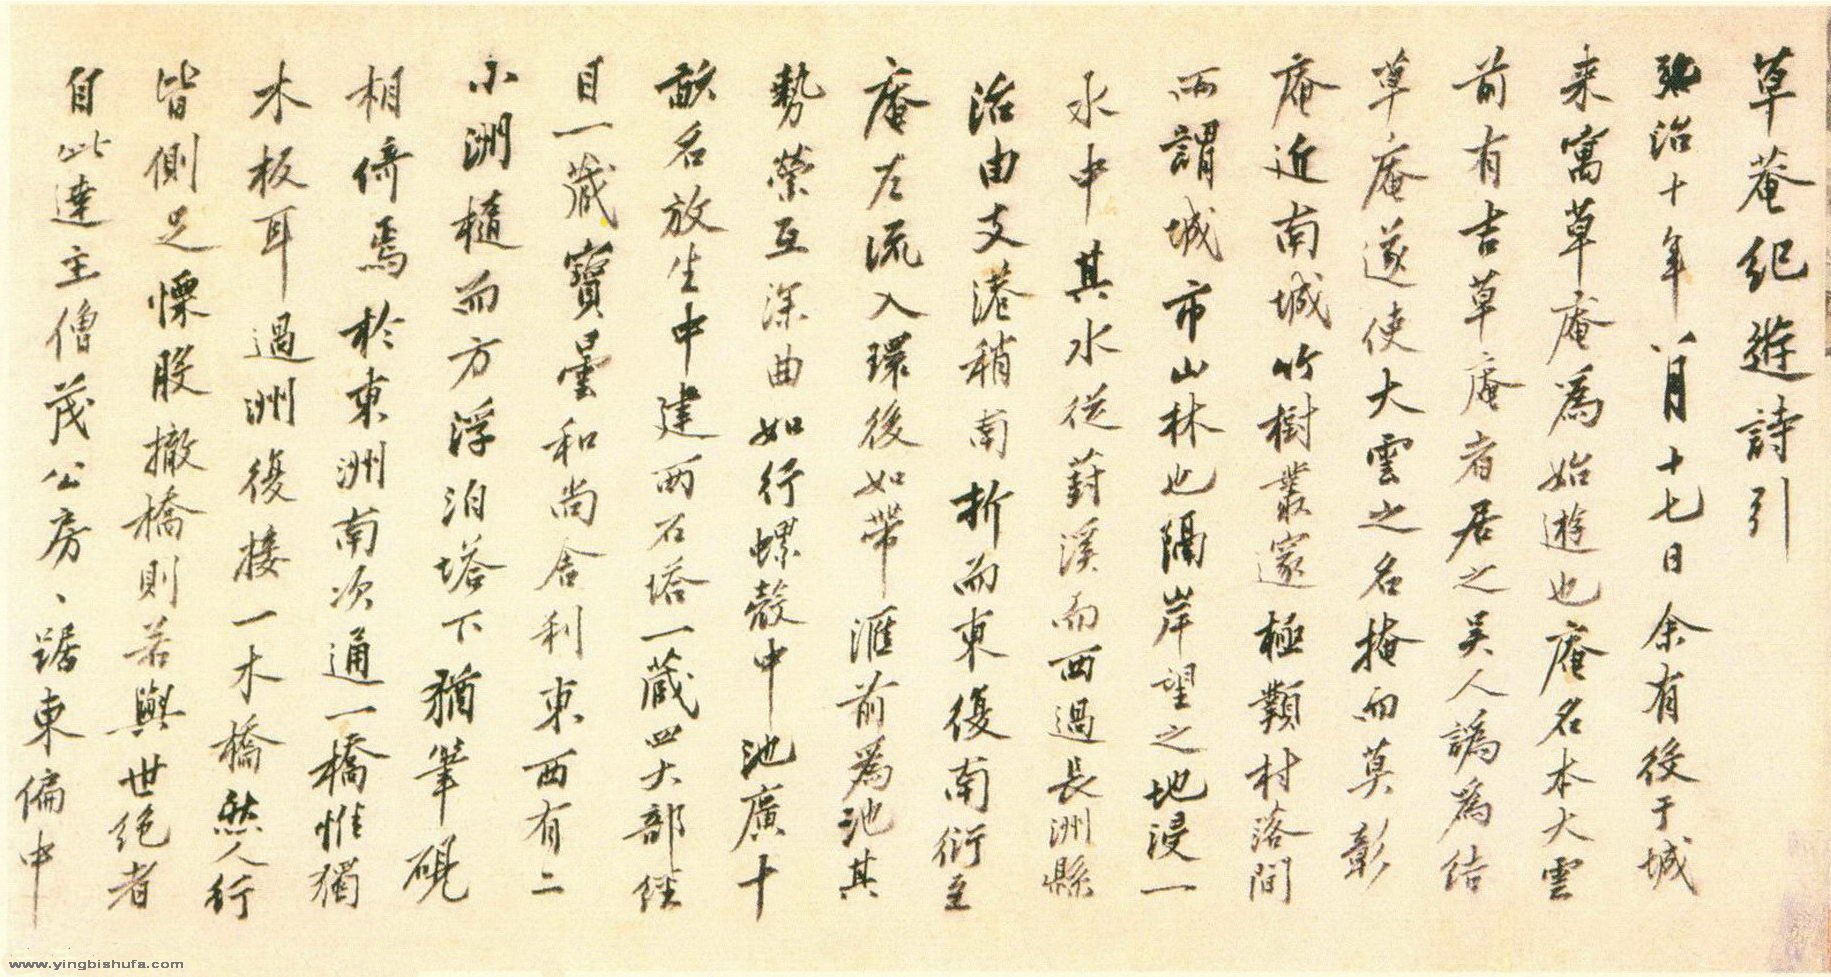 草菴紀遊詩引
弘治十年八月十七日余有役于城
来寓草庵為始遊也庵名本大雲
前有吉草庵者居之吴人譌為結
草庵遂使大雲之名掩而莫彰
庵近南城竹樹叢邃極類村落間
所謂城市山林也隔岸望之地浸一
水中其水從葑溪而西過長洲縣
治由支港稍南折而東復南衍至
庵左流入環後如帶滙前為池其
勢縈互深曲如行螺殼中池廣十
畝名放生中建两石塔一藏四大部經
目一藏寶曇和尚舍利東西有二
小洲橢而方浮泊塔下猶筆硯
相倚焉於東洲南次通一橋惟獨
木板耳過洲復接一木橋然人行
皆側足慄股撤橋則若與世绝者
自此達主僧茂公房、踞東偏中
www.yingbishufa.com